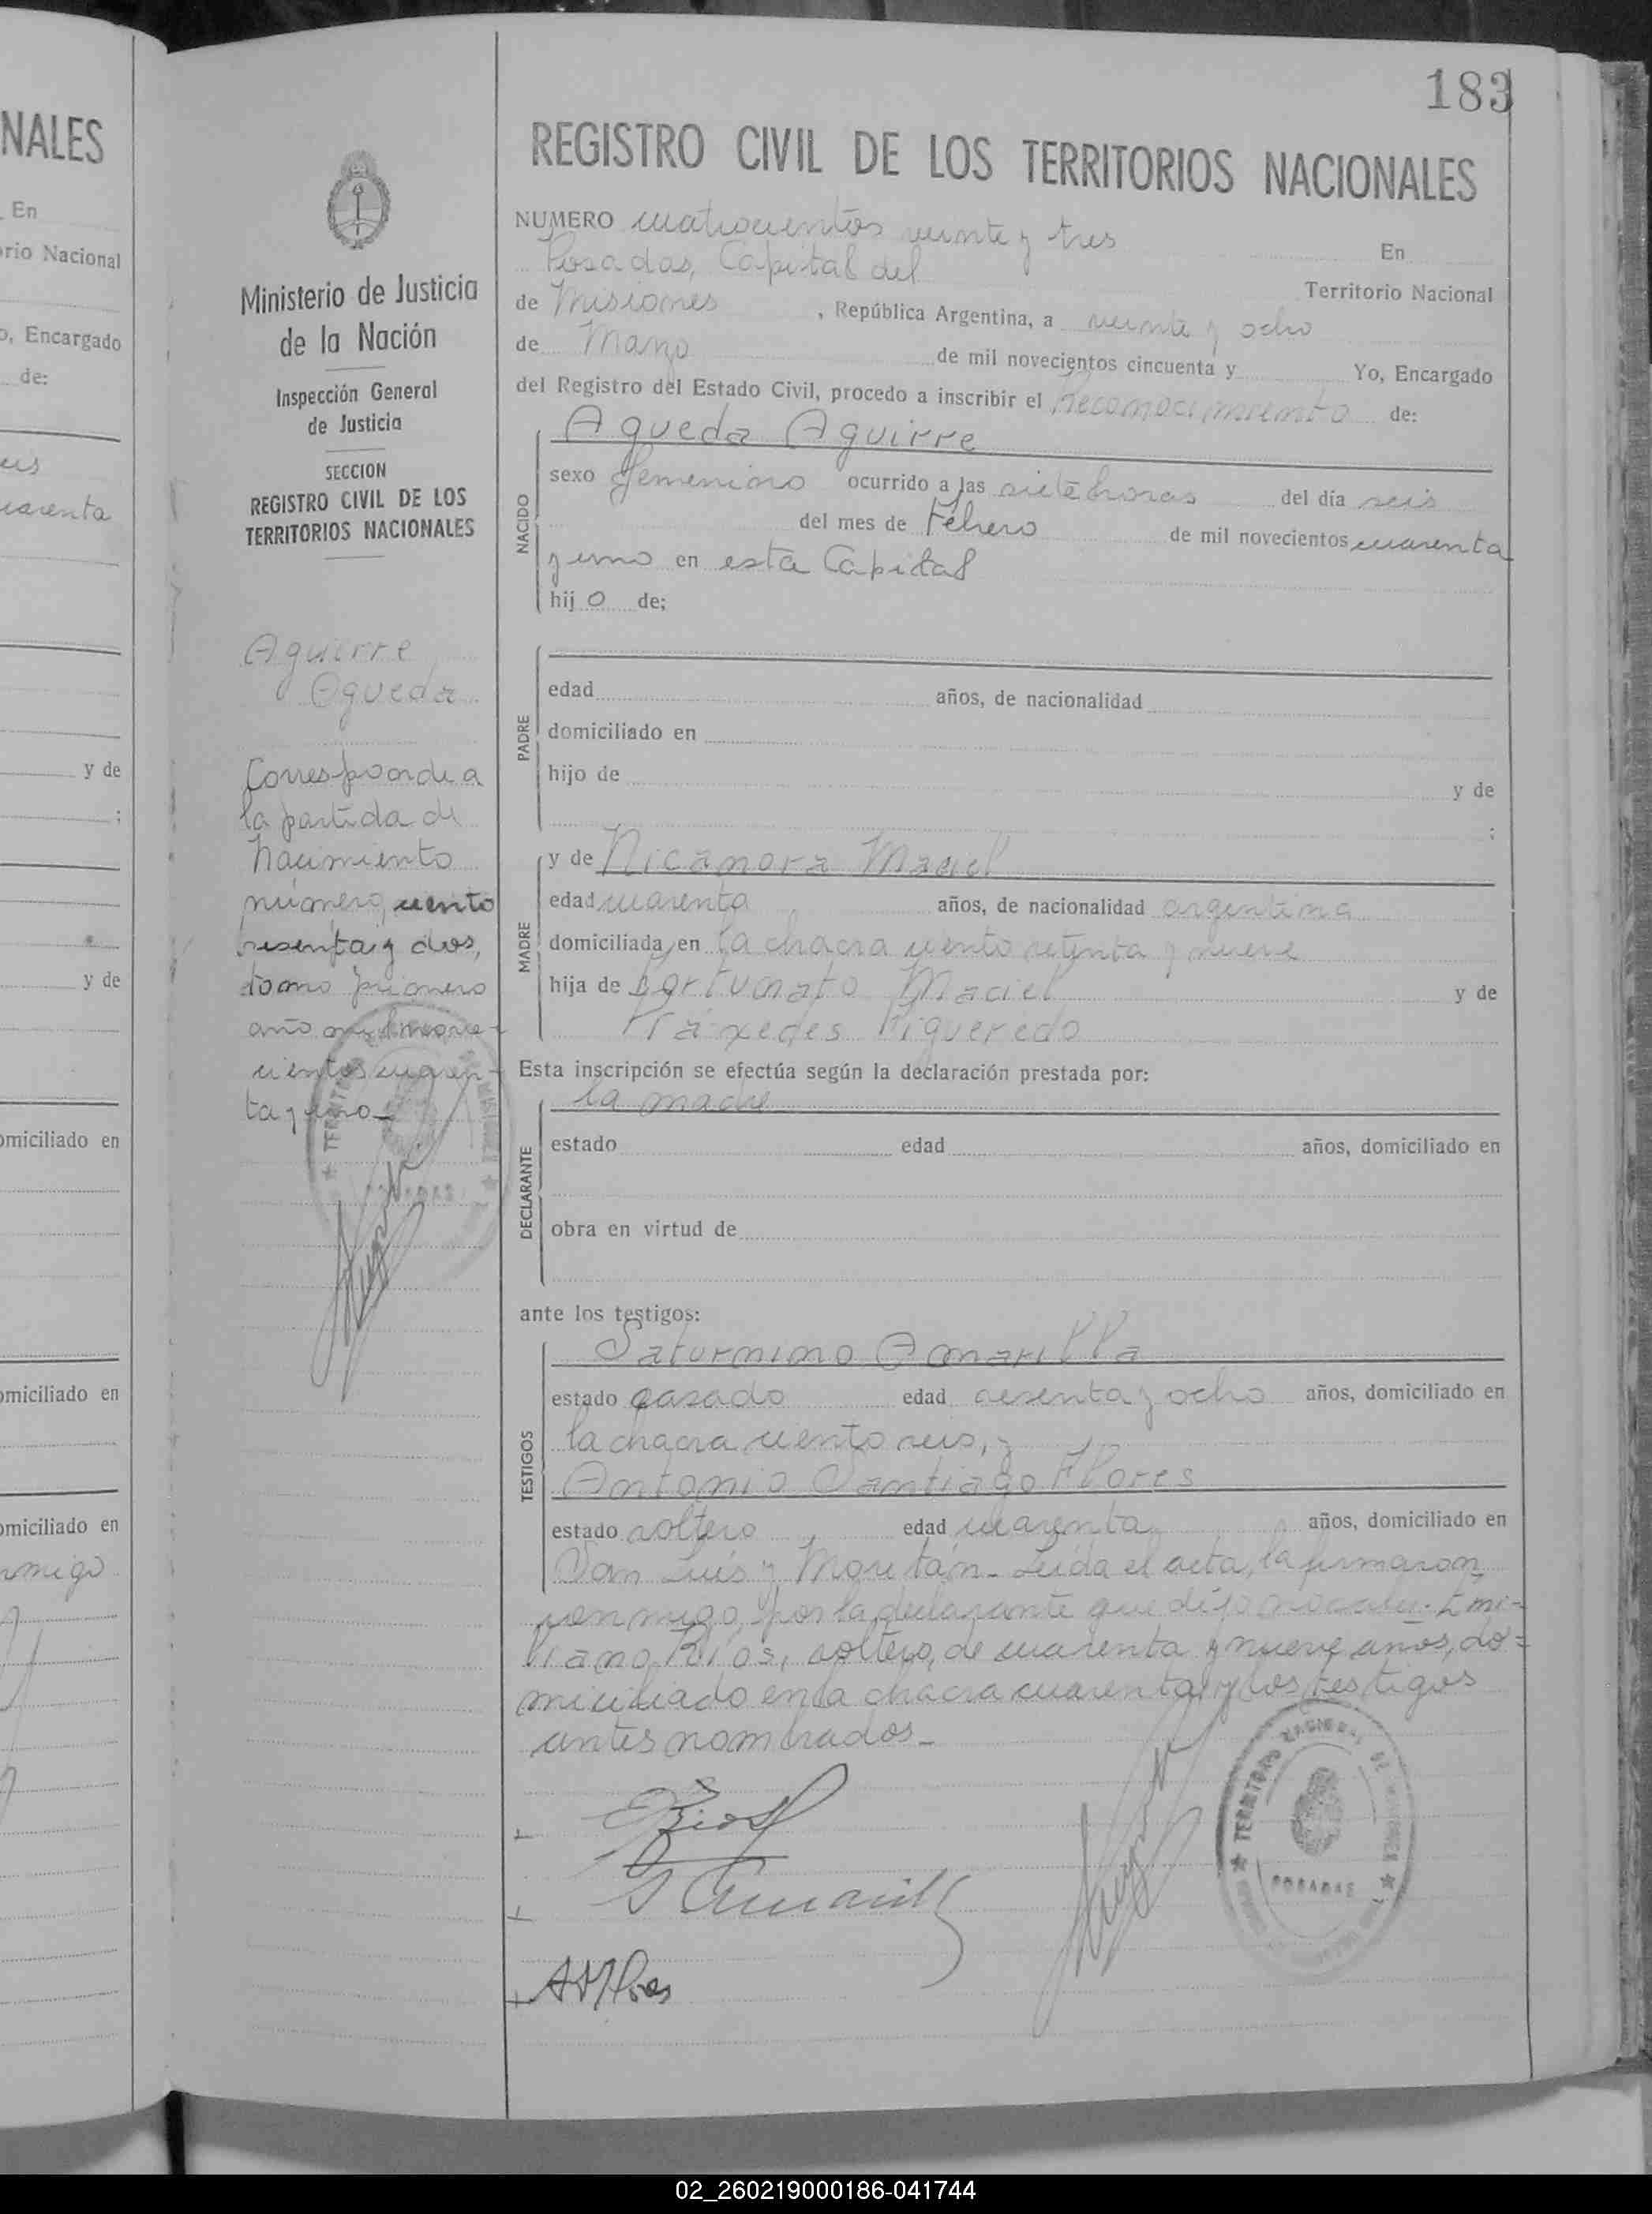 183
NALES
En
rio Nacional
o, Encargado
de:
uarenta
y de
;
y de
omiciliado en
omiciliado en
omiciliado en
nmigo
Ministerio de Justicia
de la Nación
Inspección General
de Justicia
SECCION
REGISTRO CIVIL DE LOS
TERRITORIOS NACIONALES
Aguirre
Agueda
Corresponde a
la partida de
nacimiento
número ciento
sesenta y dos,
tomo primero
año mil nove-
cientos cuaren-
ta y uno_
REGISTRO CIVIL DE LOS TERRITORIOS NACIONALES
NUMERO cuatrocientos veinte y tres En
Posadas, Capital del Territorio Nacional
de Misiones , República Argentina, a veinte y ocho
de Marzo de mil novecientos cincuenta y Yo, Encargado
del Registro del Estado Civil, procedo a inscribir el Reconocimiento de:
Agueda Aguirre
NACIDO
sexo femenino ocurrido a las siete horas del día seis
del mes de Febrero de mil novecientos cuarenta
y uno en esta Capital
hij o de;
PADRE
edad años, de nacionalidad
domiciliado en
hijo de y de
;
MADRE
y de Nicanora Maciel
edad cuarenta años, de nacionalidad argentina
domiciliada en la chacra ciento setenta y nueve
hija de Fortunato Maciel y de
Práxedes Figueredo
Esta inscripción se efectúa según la declaración prestada por:
la madre
DECLARANTE
estado edad años, domiciliado en
obra en virtud de
ante los testigos:
TESTIGOS
Saturnino Amarilla
estado casado edad sesenta y ocho años, domiciliado en
la chacra ciento seis, y
Antonio Santiago Flores
estado soltero edad cuarenta años, domiciliado en
San Luis y Moritán_ Leída el acta, la firmaron
conmigo, por la declarante que dijo no saber. Emi-
liano Ríos, soltero, de cuarenta y nueve años, do=
miciliado en la chacra cuarenta y los testigos
antes nombrados_
E Rios
S Amarilla
ASFlores
TERRITORIO NACIONAL DE MISIONES
POSADAS
02_260219000186-041744